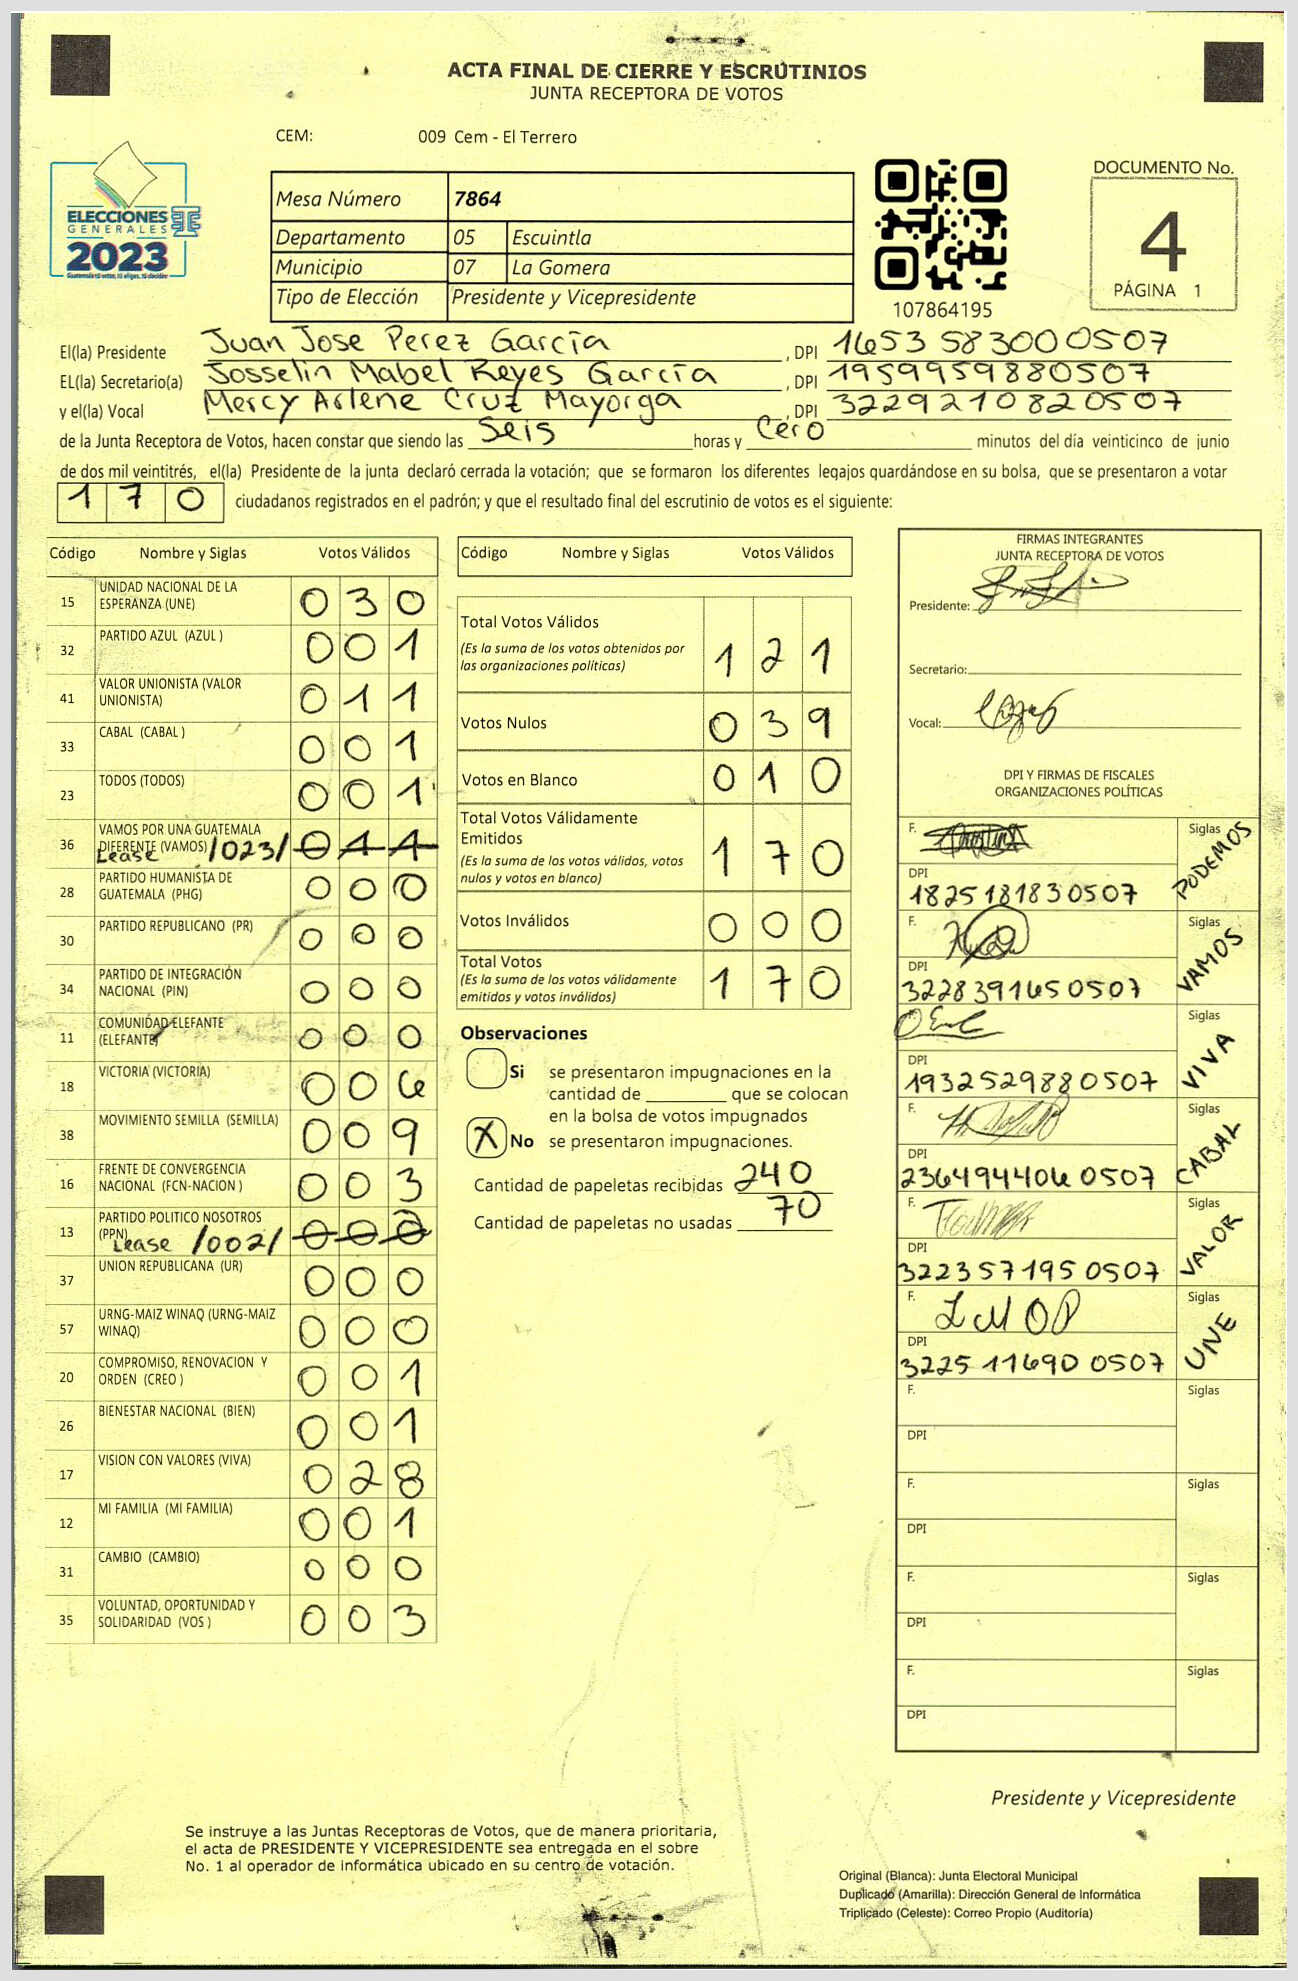 ACTA FINAL DE CIERRE Y ESCRUTINIOS
JUNTA RECEPTORA DE VOTOS
CEM: 009 Cem - El Terrero
ELECCIONES
GENERALES
2023
Mesa Número 7864
Departamento 05 Escuintla
Municipio 07 La Gomera
Tipo de Elección Presidente y Vicepresidente
107864195
DOCUMENTO No.
4
PÁGINA 1
El(la) Presidente Juan Jose Perez García , DPI 1653 58300 0507
EL(la) Secretario(a) Josselin Mabel Reyes García , DPI 1959959880507
y el(la) Vocal Mercy Arlene Cruz Mayorga , DPI 3229210820507
de la Junta Receptora de Votos, hacen constar que siendo las Seis horas y Cero minutos del día veinticinco de junio
de dos mil veintitrés, el(la) Presidente de la junta declaró cerrada la votación; que se formaron los diferentes legajos quardándose en su bolsa, que se presentaron a votar
170 ciudadanos registrados en el padrón; y que el resultado final del escrutinio de votos es el siguiente:
Código Nombre y Siglas Votos Válidos
15 UNIDAD NACIONAL DE LA ESPERANZA (UNE) 030
32 PARTIDO AZUL (AZUL ) 001
41 VALOR UNIONISTA (VALOR UNIONISTA) 011
33 CABAL (CABAL ) 001
23 TODOS (TODOS) 001
36 VAMOS POR UNA GUATEMALA DIFERENTE (VAMOS) Lease /023/ 011
28 PARTIDO HUMANISTA DE GUATEMALA (PHG) 000
30 PARTIDO REPUBLICANO (PR) 000
34 PARTIDO DE INTEGRACIÓN NACIONAL (PIN) 000
11 COMUNIDAD ELEFANTE (ELEFANTE) 000
18 VICTORIA (VICTORIA) 006
38 MOVIMIENTO SEMILLA (SEMILLA) 009
16 FRENTE DE CONVERGENCIA NACIONAL (FCN-NACION ) 003
13 PARTIDO POLITICO NOSOTROS (PPN) Lease /002/
37 UNION REPUBLICANA (UR) 000
57 URNG-MAIZ WINAQ (URNG-MAIZ WINAQ) 000
20 COMPROMISO, RENOVACION Y ORDEN (CREO ) 001
26 BIENESTAR NACIONAL (BIEN) 001
17 VISION CON VALORES (VIVA) 028
12 MI FAMILIA (MI FAMILIA) 001
31 CAMBIO (CAMBIO) 000
35 VOLUNTAD, OPORTUNIDAD Y SOLIDARIDAD (VOS ) 003
Código Nombre y Siglas Votos Válidos
Total Votos Válidos
(Es la suma de los votos obtenidos por
las organizaciones políticas) 121
Votos Nulos 039
Votos en Blanco 010
Total Votos Válidamente
Emitidos
(Es la suma de los votos válidos, votos
nulos y votos en blanco) 170
Votos Inválidos 000
Total Votos
(Es la suma de los votos válidamente
emitidos y votos inválidos) 170
Observaciones
Si se presentaron impugnaciones en la
cantidad de ________ que se colocan
en la bolsa de votos impugnados
X No se presentaron impugnaciones.
Cantidad de papeletas recibidas 240
Cantidad de papeletas no usadas 70
FIRMAS INTEGRANTES
JUNTA RECEPTORA DE VOTOS
Presidente:
Secretario:
Vocal:
DPI Y FIRMAS DE FISCALES
ORGANIZACIONES POLÍTICAS
F. Siglas PODEMOS
DPI 1825181830507
F. Siglas VAMOS
DPI 3228391650507
F. Siglas VIVA
DPI 1932529880507
F. Siglas CABAL
DPI 2364944060507
F. Siglas VALOR
DPI 3223571950507
F. LMOP Siglas UNE
DPI 3225116900507
F. Siglas
DPI
F. Siglas
DPI
F. Siglas
DPI
F. Siglas
DPI
Presidente y Vicepresidente
Se instruye a las Juntas Receptoras de Votos, que de manera prioritaria,
el acta de PRESIDENTE Y VICEPRESIDENTE sea entregada en el sobre
No. 1 al operador de informática ubicado en su centro de votación.
Original (Blanca): Junta Electoral Municipal
Duplicado (Amarilla): Dirección General de Informática
Triplicado (Celeste): Correo Propio (Auditoría)